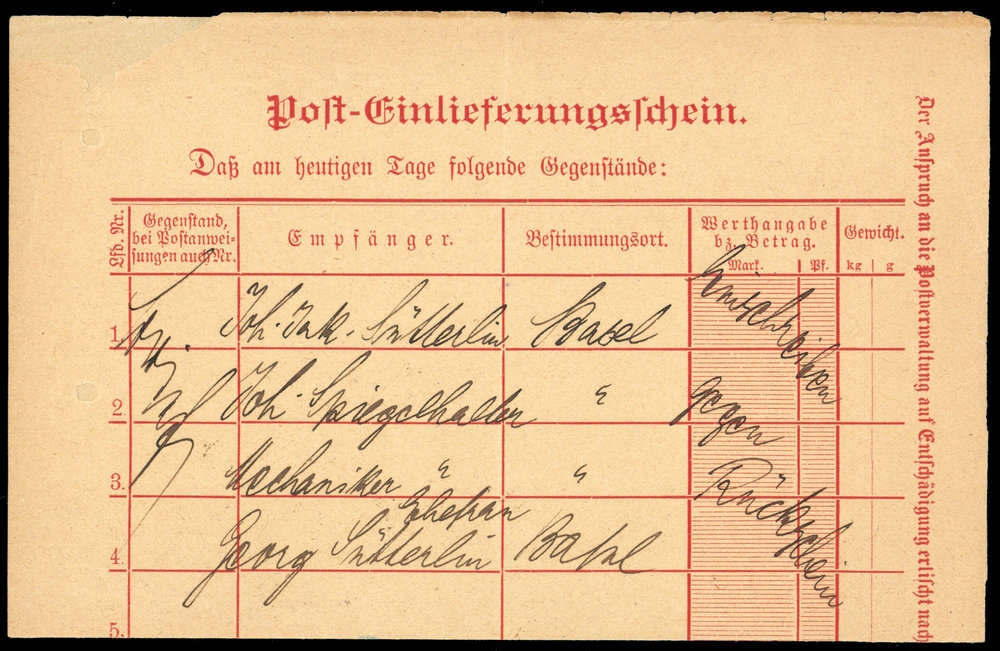 Post-Einlieferungsschein.
Daß am heutigen Tage folgende Gegenstände:
Lfd. Nr.
Gegenstand, bei Postanwei- sungen auch Nr.
Empfänger.
Bestimmungsort.
Werthangabe bz. Betrag.
Mark. Pf.
Gewicht.
kg g
1. Joh. Jak. Sütterlin Basel
2. Joh. Spiegelhalter "
3. Mechaniker " "
Ehefrau
4. Georg Sütterlin Basel
5.
Einschreiben
gegen
Rückschein
Der Anspruch an die Postverwaltung auf Entschädigung erlischt nach